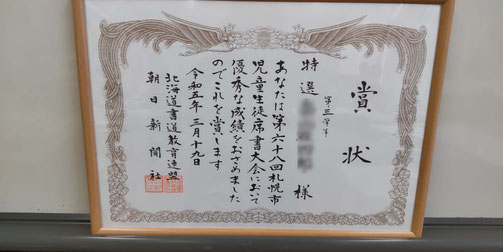 賞状
第三学年
特選 様
あなたは第六十八回札幌市
児童生徒席書大会において
優秀な成績をおさめました
のでこれを賞します
令和五年三月十九日
北海道書道教育連盟
朝日新聞社